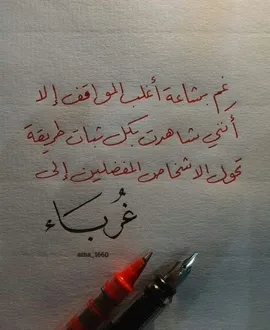 غم بشاعة أغلب المواقف إلا
أنني شاهدت بكل ثبات طريقة
تحول الاشخاص المفضلين إلى
غُربَاء
ama_1660